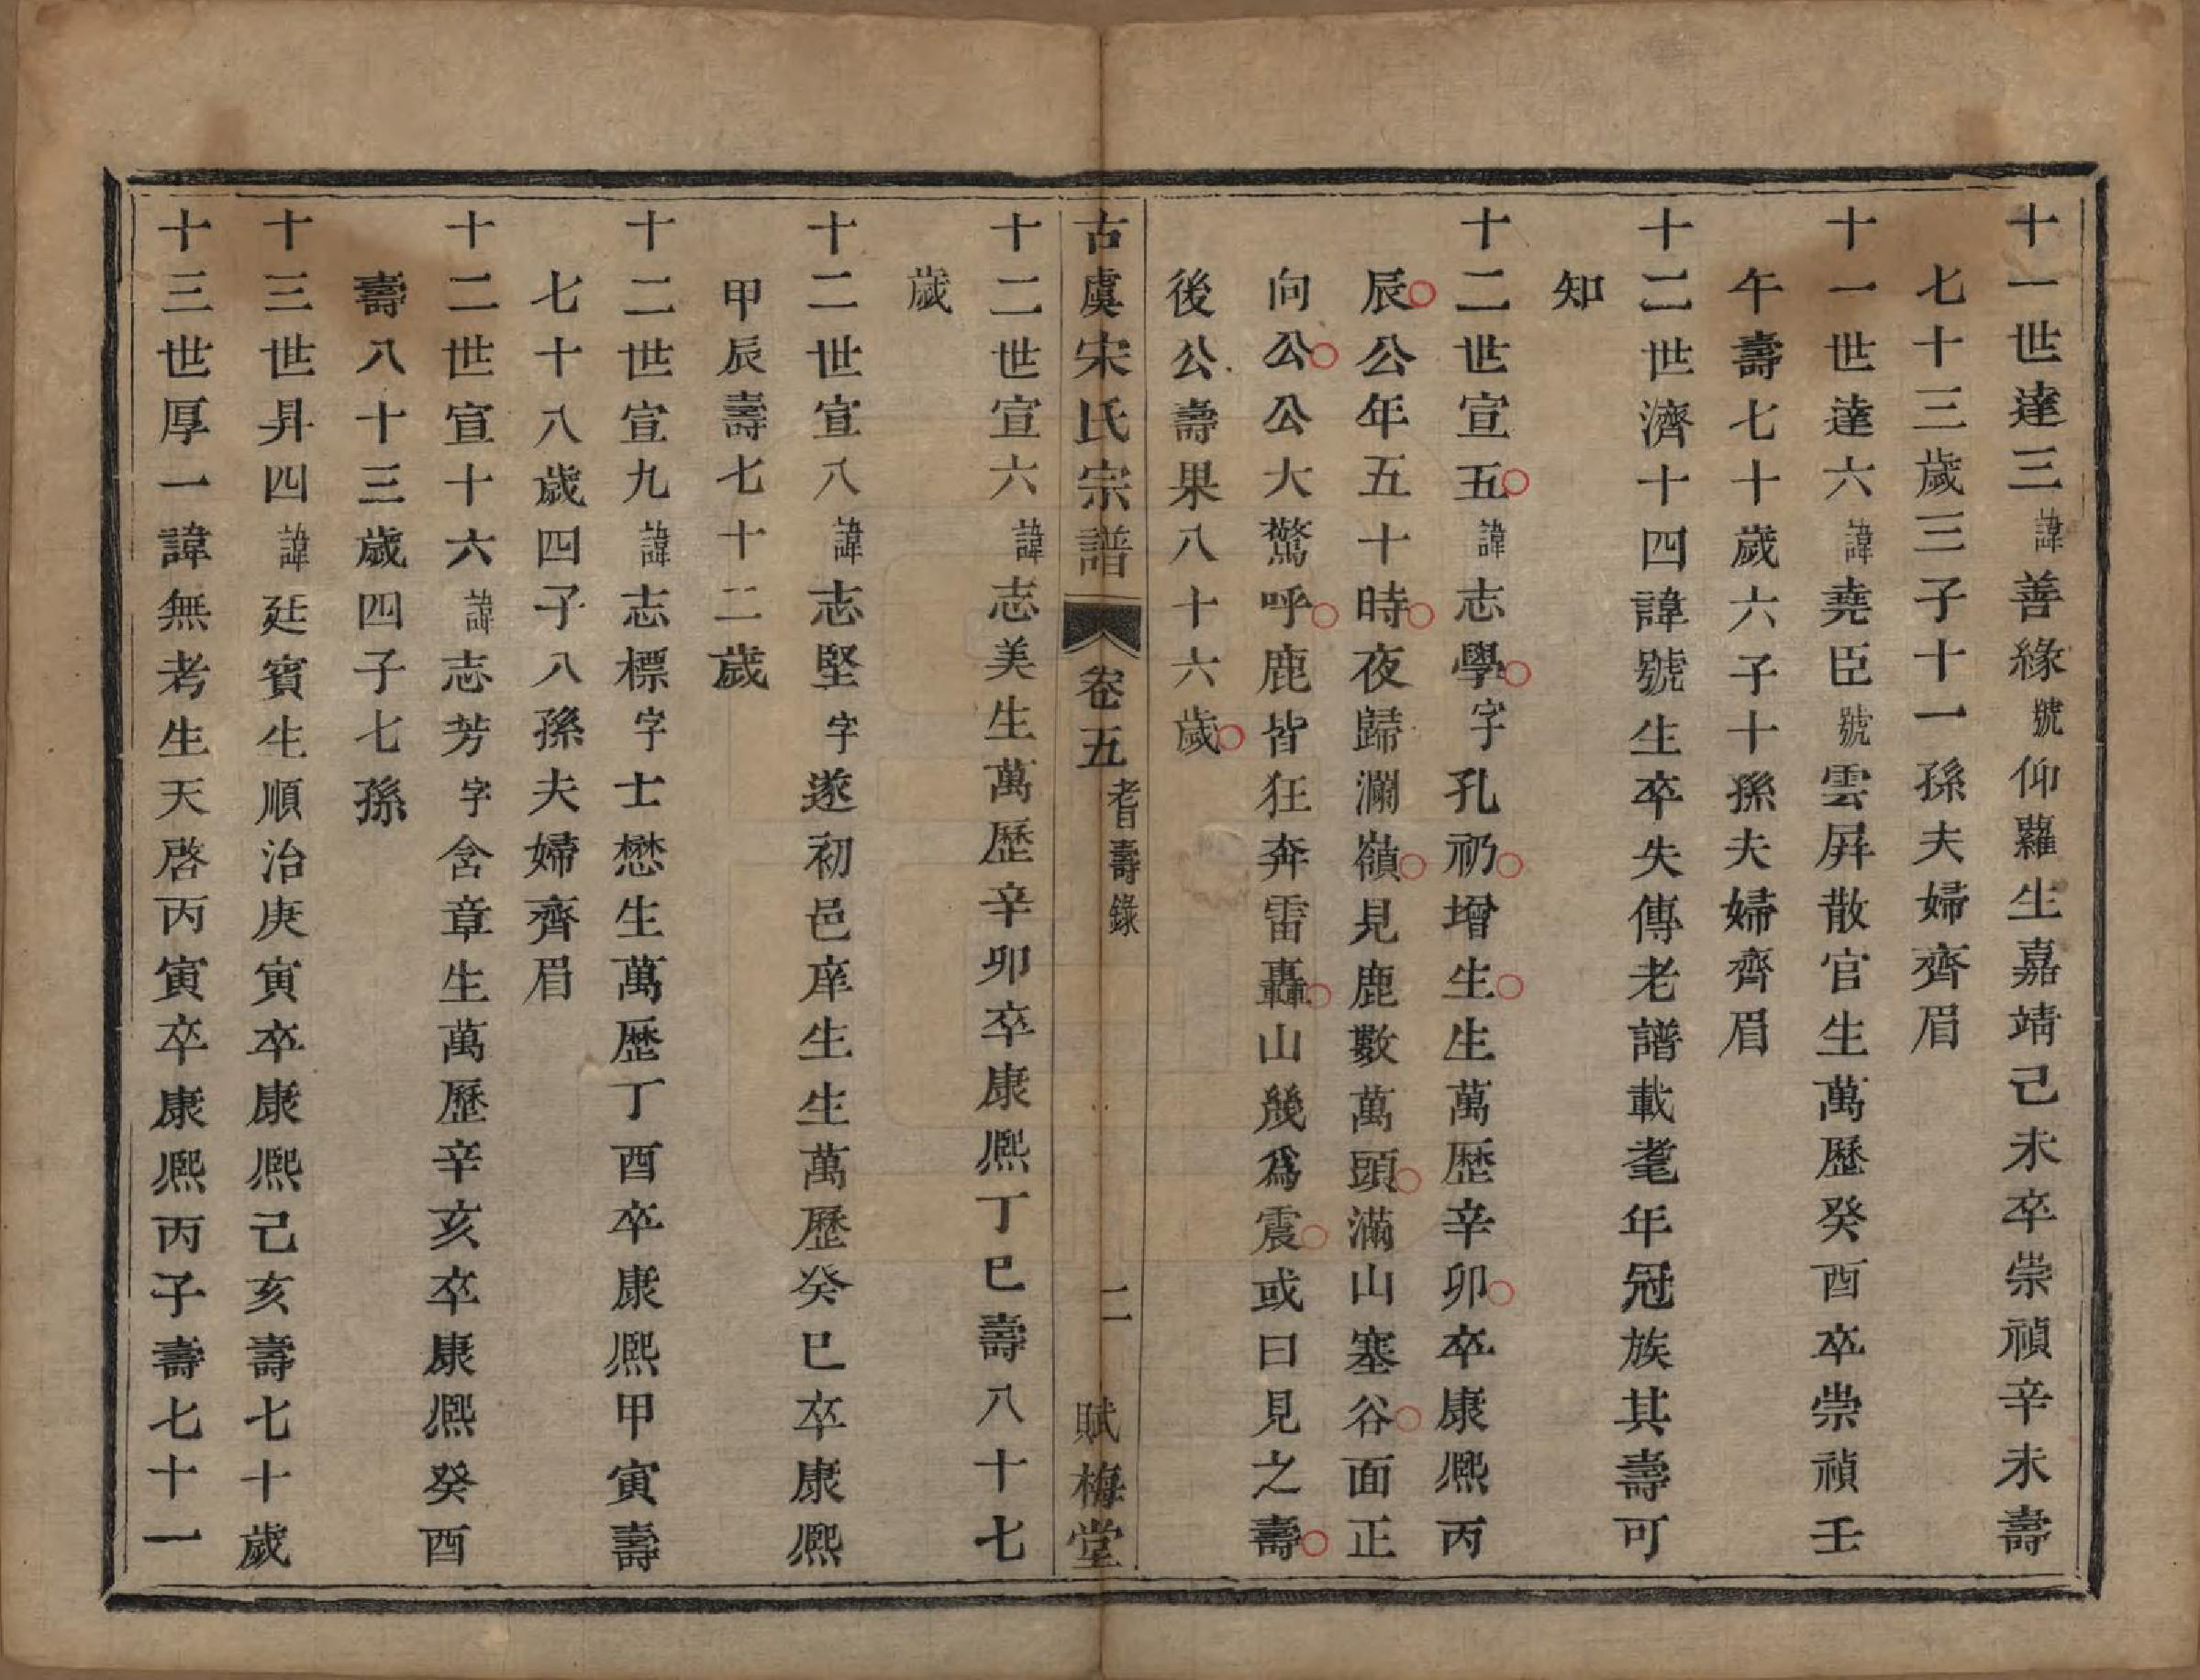 十一世達三諱善緣號仰蘿生嘉靖己未卒崇禎辛未壽
七十三歲三子十一孫夫婦齊眉
十一世達六諱堯臣號雲屏散官生萬歷癸酉卒崇禎壬
午壽七十歲六子十孫夫婦齊眉
十二世濟十四諱號生卒失傳老譜載耄年冠族其壽可
知
十二世宣五諱志學字孔礽增生生萬歷辛卯卒康熙丙
辰公年五十時夜歸澜嶺見鹿數萬頭滿山塞谷面正
向公公大驚呼鹿皆狂奔雷轟山幾為震或曰見之壽
後公壽果八十六歲
古虞宋氏宗譜 卷五 耆壽錄 二 賦梅堂
十二世宣六諱志美生萬歷辛卯卒康熙丁巳壽八十七
歲
十二世宣八諱志堅字遂初邑庠生生萬歷癸巳卒康熙
甲辰壽七十二歲
十二世宣九諱志標字士懋生萬歷丁酉卒康熙甲寅壽
七十八歲四子八孫夫婦齊眉
十二世宣十六諱志芳字含章生萬歷辛亥卒康熙癸酉
壽八十三歲四子七孫
十三世昇四諱廷賓生順治庚寅卒康熙己亥壽七十歲
十三世厚一諱無考生天啓丙寅卒康熙丙子壽七十一